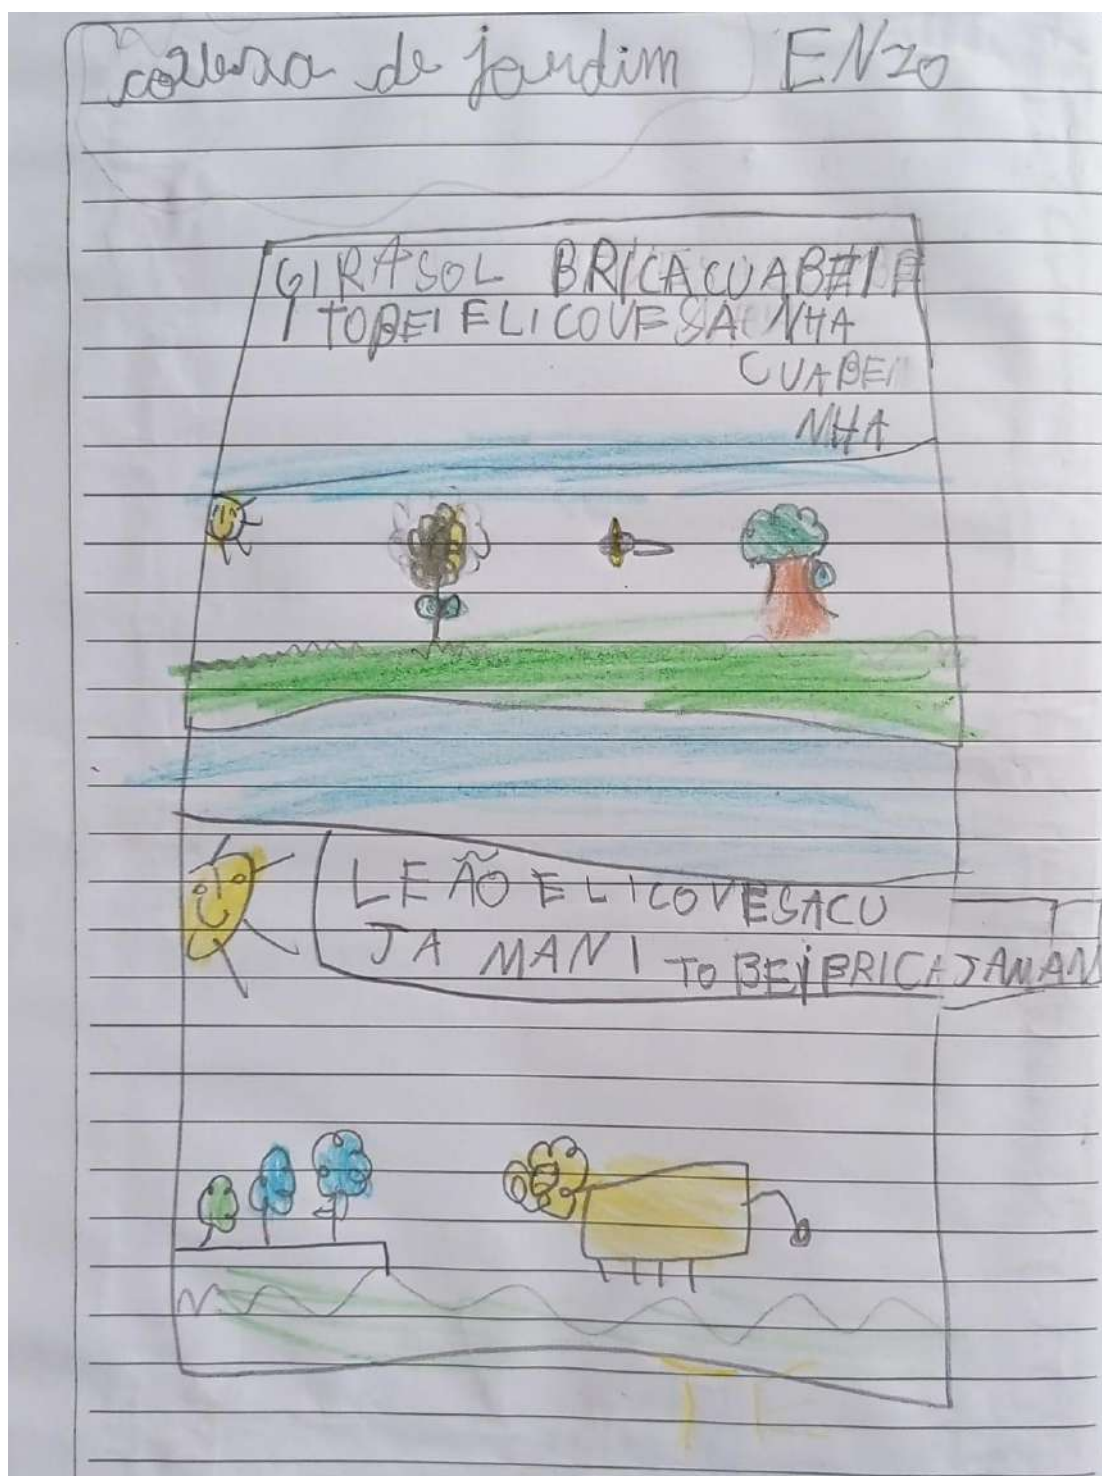 de jardim ENZO
GIRASOL BRICACUABEI
TOBEI ELICOVESA NHA
CUABEI
NHA
LEÃO ELICOVESACU
JAMANI TOBEI BRICAJAMAN